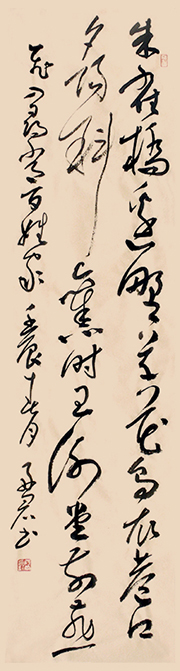 朱雀橋邊野草花烏衣巷口
夕陽斜舊時王謝堂前燕
飛入尋常百姓家 壬辰 月 书